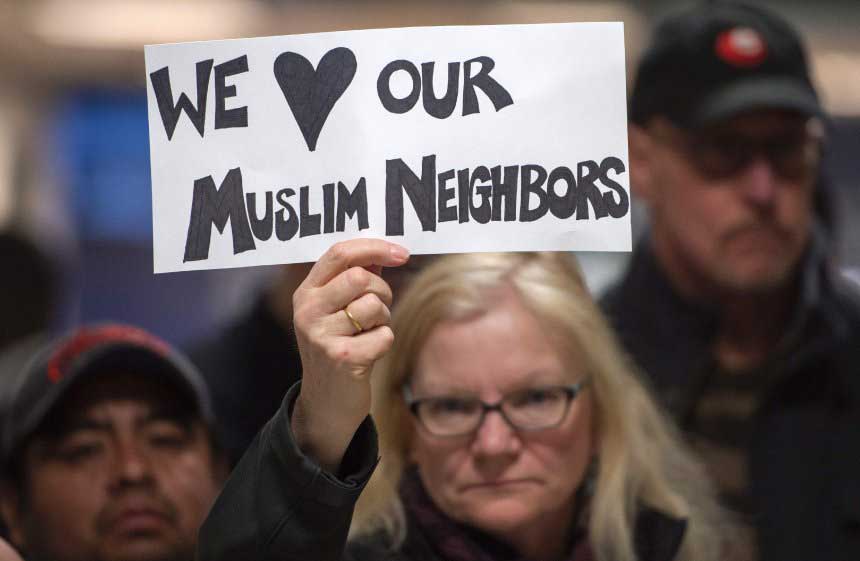 WE ♥ OUR
MUSLIM NEIGHBORS